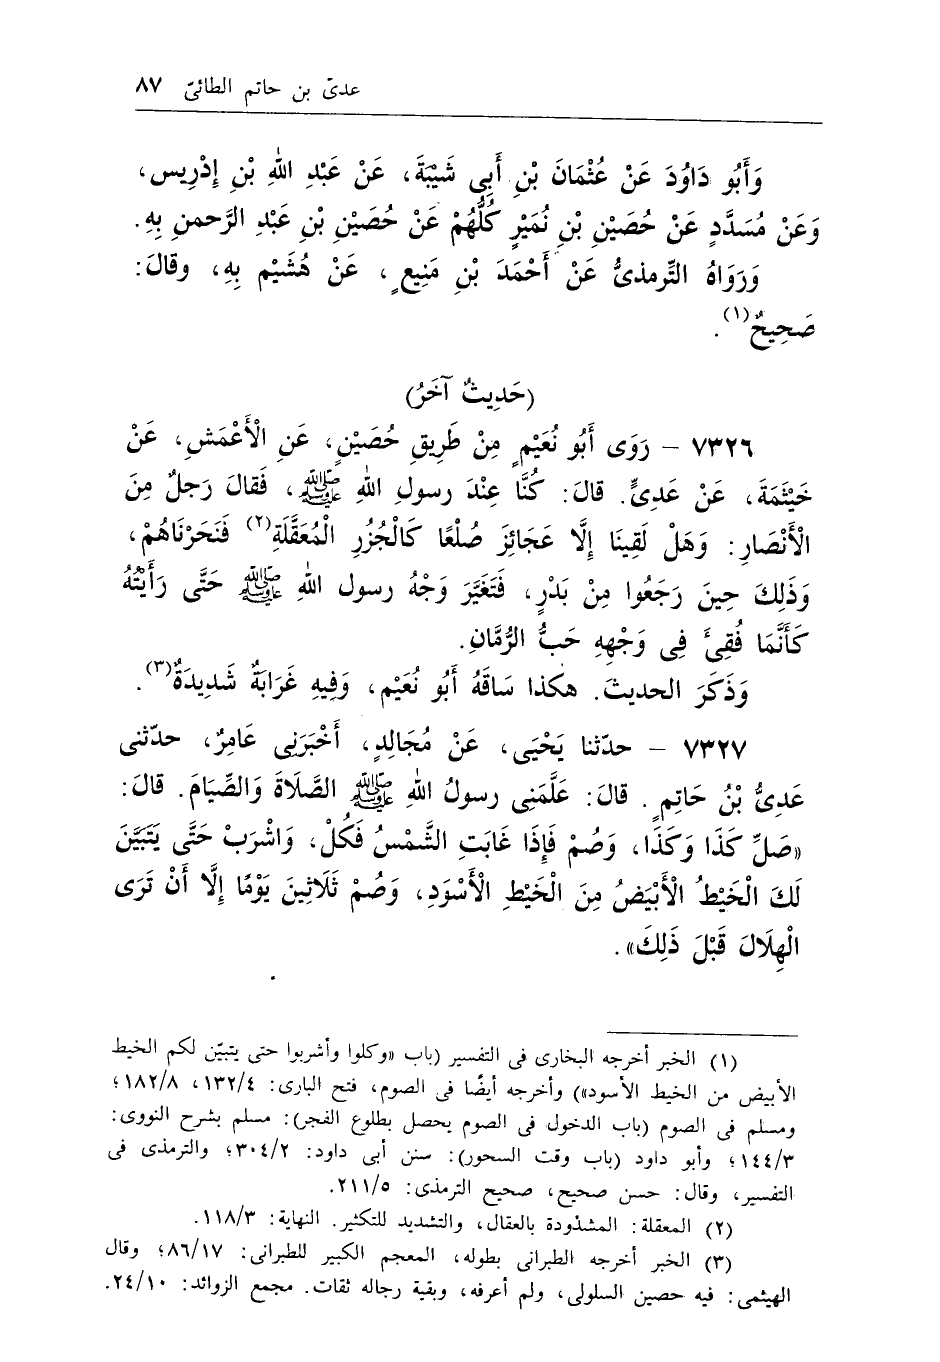 عدىّ بن حاتم الطائىّ ٨٧
وَأَبُو دَاوُدَ عَنْ عُثْمَانَ بْنِ أَبِى شَيْبَةَ، عَنْ عَبْدِ اللهِ بْنِ إِدْرِيس،
وَعَنْ مُسَدَّدٍ عَنْ حُصَيْنِ بْنِ نُمَيْرٍ كُلُّهُمْ عَنْ حُصَيْنِ بْنِ عَبْدِ الرَّحمنِ بِهِ.
وَرَوَاهُ التِّرمذىُّ عَنْ أَحْمَدَ بْنِ مَنِيعٍ، عَنْ هُشَيْمٍ بِهِ، وقالَ:
صَحِيحٌ(١).
(حَدِيثٌ آخَرُ)
٧٣٢٦ – رَوَى أَبُو نُعَيْمٍ مِنْ طَرِيقِ حُصَيْنٍ، عَنِ الْأَعْمَشِ، عَنْ
خَيْثَمَةَ، عَنْ عَدِىٍّ. قالَ: كُنَّا عِنْدَ رسولِ اللهِ ﷺ، فَقالَ رَجلٌ مِنَ
الْأَنْصَارِ: وَهَلْ لَقِينَا إِلَّا عَجَائِزَ صُلْعًا كَالْجُزُرِ الْمُعَقَّلَةِ(٢) فَنَحَرْنَاهُمْ،
وَذَلِكَ حِينَ رَجَعُوا مِنْ بَدْرٍ، فَتَغَيَّرَ وَجْهُ رسول اللهِ ﷺ حَتَّى رَأَيْتُهُ
كَأَنَّمَا فُقِئَ فِى وَجْهِهِ حَبُّ الرُّمَّانِ.
وَذَكَرَ الحديثَ. هكذا سَاقَهُ أَبُو نُعَيْم، وَفِيهِ غَرَابَةٌ شَدِيدَةٌ(٣).
٧٣٢٧ – حدّثنا يَحْيَى، عَنْ مُجَالِدٍ، أَخْبَرَنِى عَامِرٌ، حدّثنى
عَدِىُّ بْنُ حَاتِمٍ. قالَ: عَلَّمَنِى رسولُ اللهِ ﷺ الصَّلَاةَ وَالصِّيَامَ. قالَ:
«صَلِّ كَذَا وَكَذَا، وَصُمْ فَإِذَا غَابَتِ الشَّمْسُ فَكُلْ، وَاشْرَبْ حَتَّى يَتَبَيَّنَ
لَكَ الْخَيْطُ الْأَبْيَضُ مِنَ الْخَيْطِ الْأَسْوَدِ، وَصُمْ ثَلَاثِينَ يَوْمًا إِلَّا أَنْ تَرَى
الْهِلَالَ قَبْلَ ذَلِكَ».
(١) الخبر أخرجه البخارى فى التفسير (باب «وكلوا وأشربوا حتى يتبيّن لكم الخيط
الأبيض من الخيط الأسود») وأخرجه أيضًا فى الصوم، فتح البارى: ١٣٢/٤، ١٨٢/٨؛
ومسلم فى الصوم (باب الدخول فى الصوم يحصل بطلوع الفجر): مسلم بشرح النووى:
١٤٤/٣؛ وأبو داود (باب وقت السحور): سنن أبى داود: ٣٠٤/٢؛ والترمذى فى
التفسير، وقال: حسن صحيح، صحيح الترمذى: ٢١١/٥.
(٢) المعقلة: المشدودة بالعقال، والتشديد للتكثير. النهاية: ١١٨/٣.
(٣) الخبر أخرجه الطبرانى بطوله، المعجم الكبير للطبرانى: ٨٦/١٧؛ وقال
الهيثمى: فيه حصين السلولى، ولم أعرفه، وبقية رجاله ثقات. مجمع الزوائد: ٢٤/١٠.